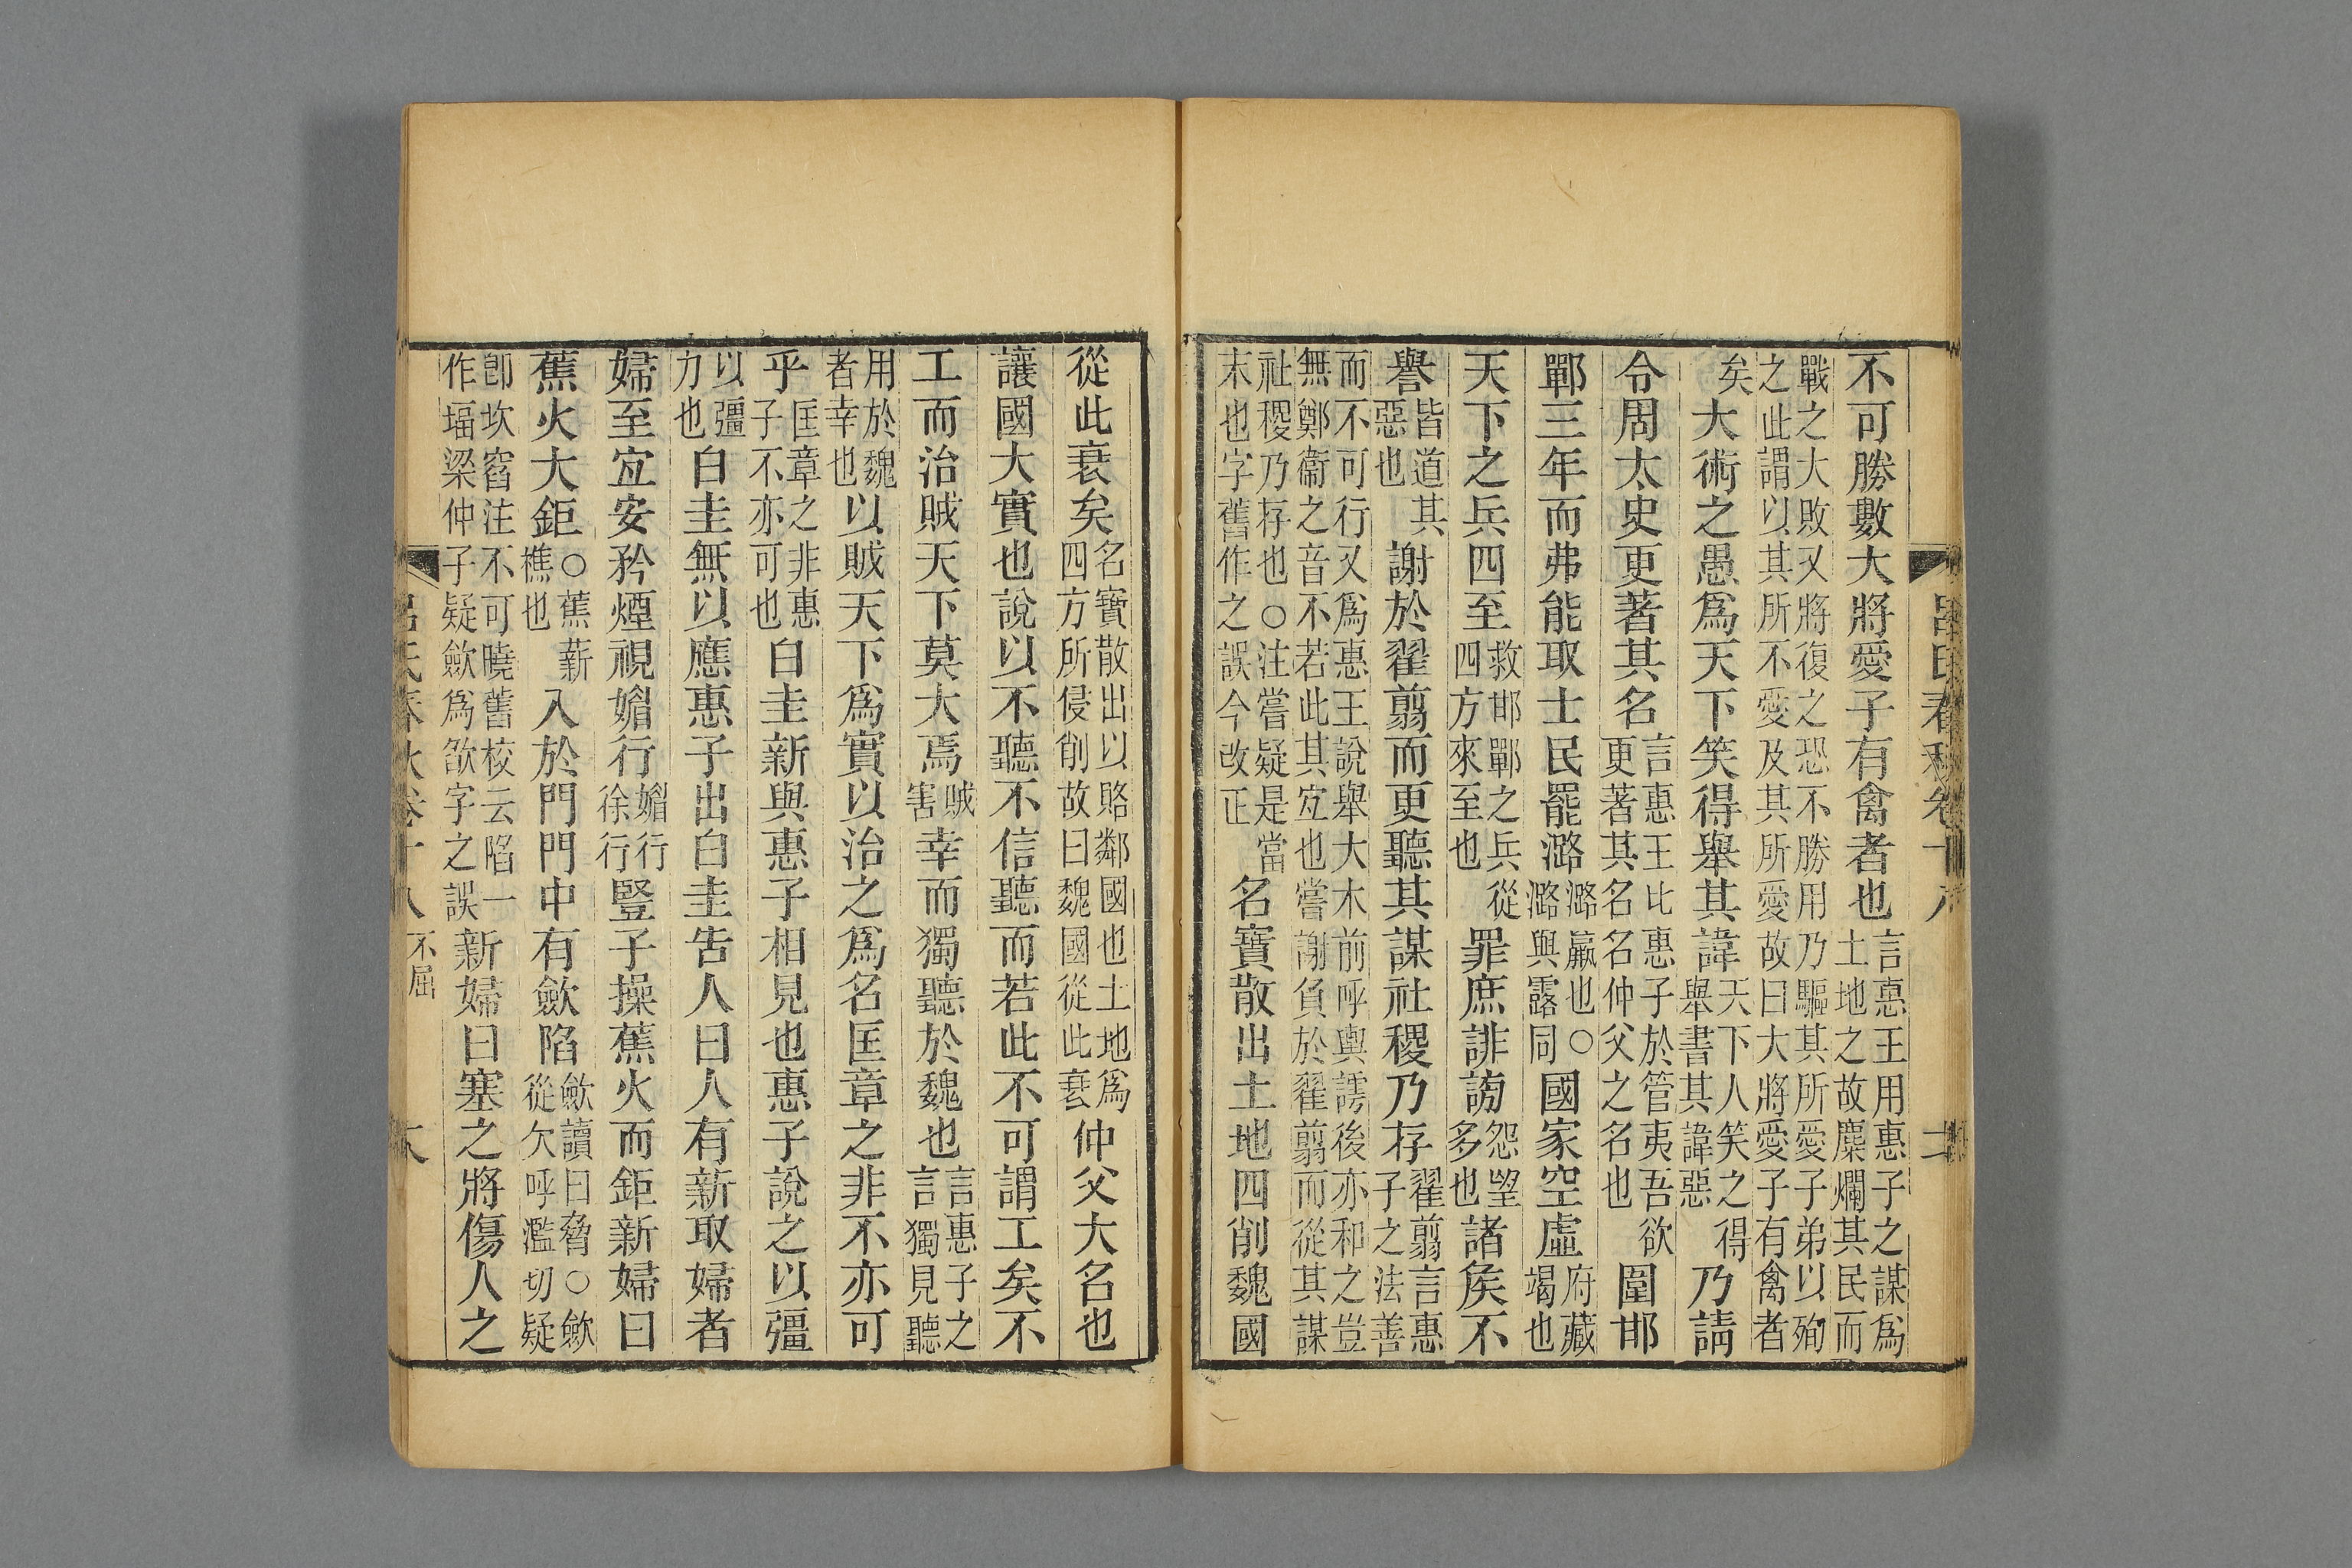 呂氏春秋卷十八
不可勝數大將愛子有禽者也言惠王用惠子之謀爲土地之故麋爛其民而
戰之大敗又將復之恐不勝用乃驅其所愛子弟以殉之此謂以其所不愛及其所愛故曰大將愛子有禽者
矣大術之愚爲天下笑得舉其諱天下人笑之得舉書其諱惡乃請
令周太史更著其名言惠王比惠子於管夷吾欲更著其名名仲父之名也圍邯
鄲三年而弗能取士民罷潞潞羸也○潞與露同國家空虛府藏竭也
天下之兵四至救邯鄲之兵從四方來至也罪庶誹謗怨望多也諸矦不
譽皆道其惡也謝於翟翦而更聽其謀社稷乃存翟翦言惠子之法善
而不可行又爲惠王說舉大木前呼輿謣後亦和之豈無鄭衞之音不若此其宜也嘗謝負於翟翦而從其謀
社稷乃存也○注嘗疑是當末也字舊作之誤今改正名寶散出土地四削魏國
從此衰矣名寶散出以賂鄰國也土地爲四方所侵削故曰魏國從此衰仲父大名也
讓國大實也說以不聽不信聽而若此不可謂工矣不
工而治賊天下莫大焉賊害幸而獨聽於魏也言惠子之言獨見聽
用於魏者幸也以賊天下爲實以治之爲名匡章之非不亦可
乎匡章之非惠子不亦可也白圭新與惠子相見也惠子說之以彊
以彊力也白圭無以應惠子出白圭告人曰人有新取婦者
婦至宜安矜煙視媚行媚行徐行豎子操蕉火而鉅新婦曰
蕉火大鉅○蕉薪樵也入於門門中有歛陷歛讀曰脅○歛從欠呼濫切疑
卽坎窞注不可曉舊校云陷一作堛梁仲子疑歛爲欿字之誤新婦曰塞之將傷人之
呂氏春秋卷十八 不屈 六